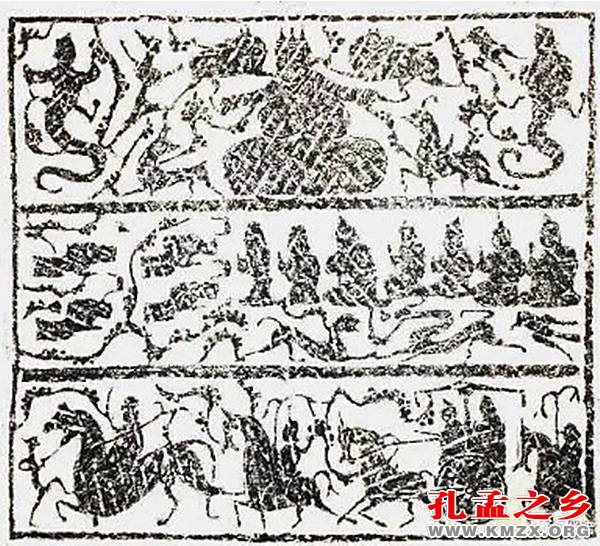 孔孟之乡
WWW.KMZX.ORG